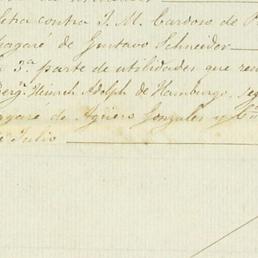 letra contra J. M. Cardoso de P
pagaré de Gustavo Schneider
3.ª parte de utilidades que re
berg. Heinrich Adolph de Hamburgo, seg
pagaré de Agüero Gonzales y C.ª
Julio